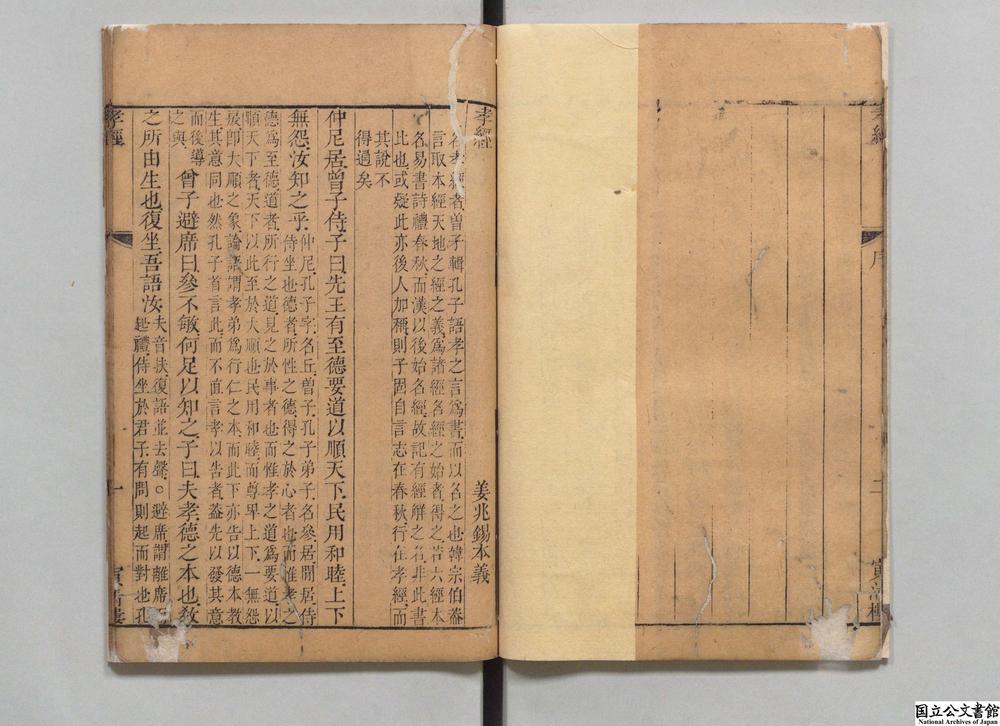 孝經
序
二
孝經
姜兆錫本義
名孝經者曾子輯孔子語孝之言爲書而以名之也韓宗伯菼
言取本經天地之經之義爲諸經名經之始者得之若六經本
名易書詩禮春秋而漢以後始名經故記有經解之名非此書
比也或疑此亦後人加稱則子固自言志在春秋行在孝經而
其說不
得過矣
仲尼居曾子侍子曰先王有至德要道以順天下民用和睦上下
無怨汝知之乎
仲尼孔子字名丘曾子孔子弟子名參居閒居侍
侍坐也德者所性之德得之於心者也而惟孝之
德爲至德道者所行之道見之於事者也而惟孝之道爲要道以
順天下者天下以此至於大順也民用和睦而尊卑上下一無怨
戾即大順之象論語謂孝弟爲行仁之本而此下亦告以德本教
生其意同也然孔子首言此而不直言孝以告者蓋先以發其意
而後導
之與
曾子避席曰參不敏何足以知之子曰夫孝德之本也教
之所由生也復坐吾語汝
夫音扶復語並去聲○避席謂離席
起禮侍坐於君子有問則起而對也孔
孝經
一
国立公文書館
National Archives of Japan